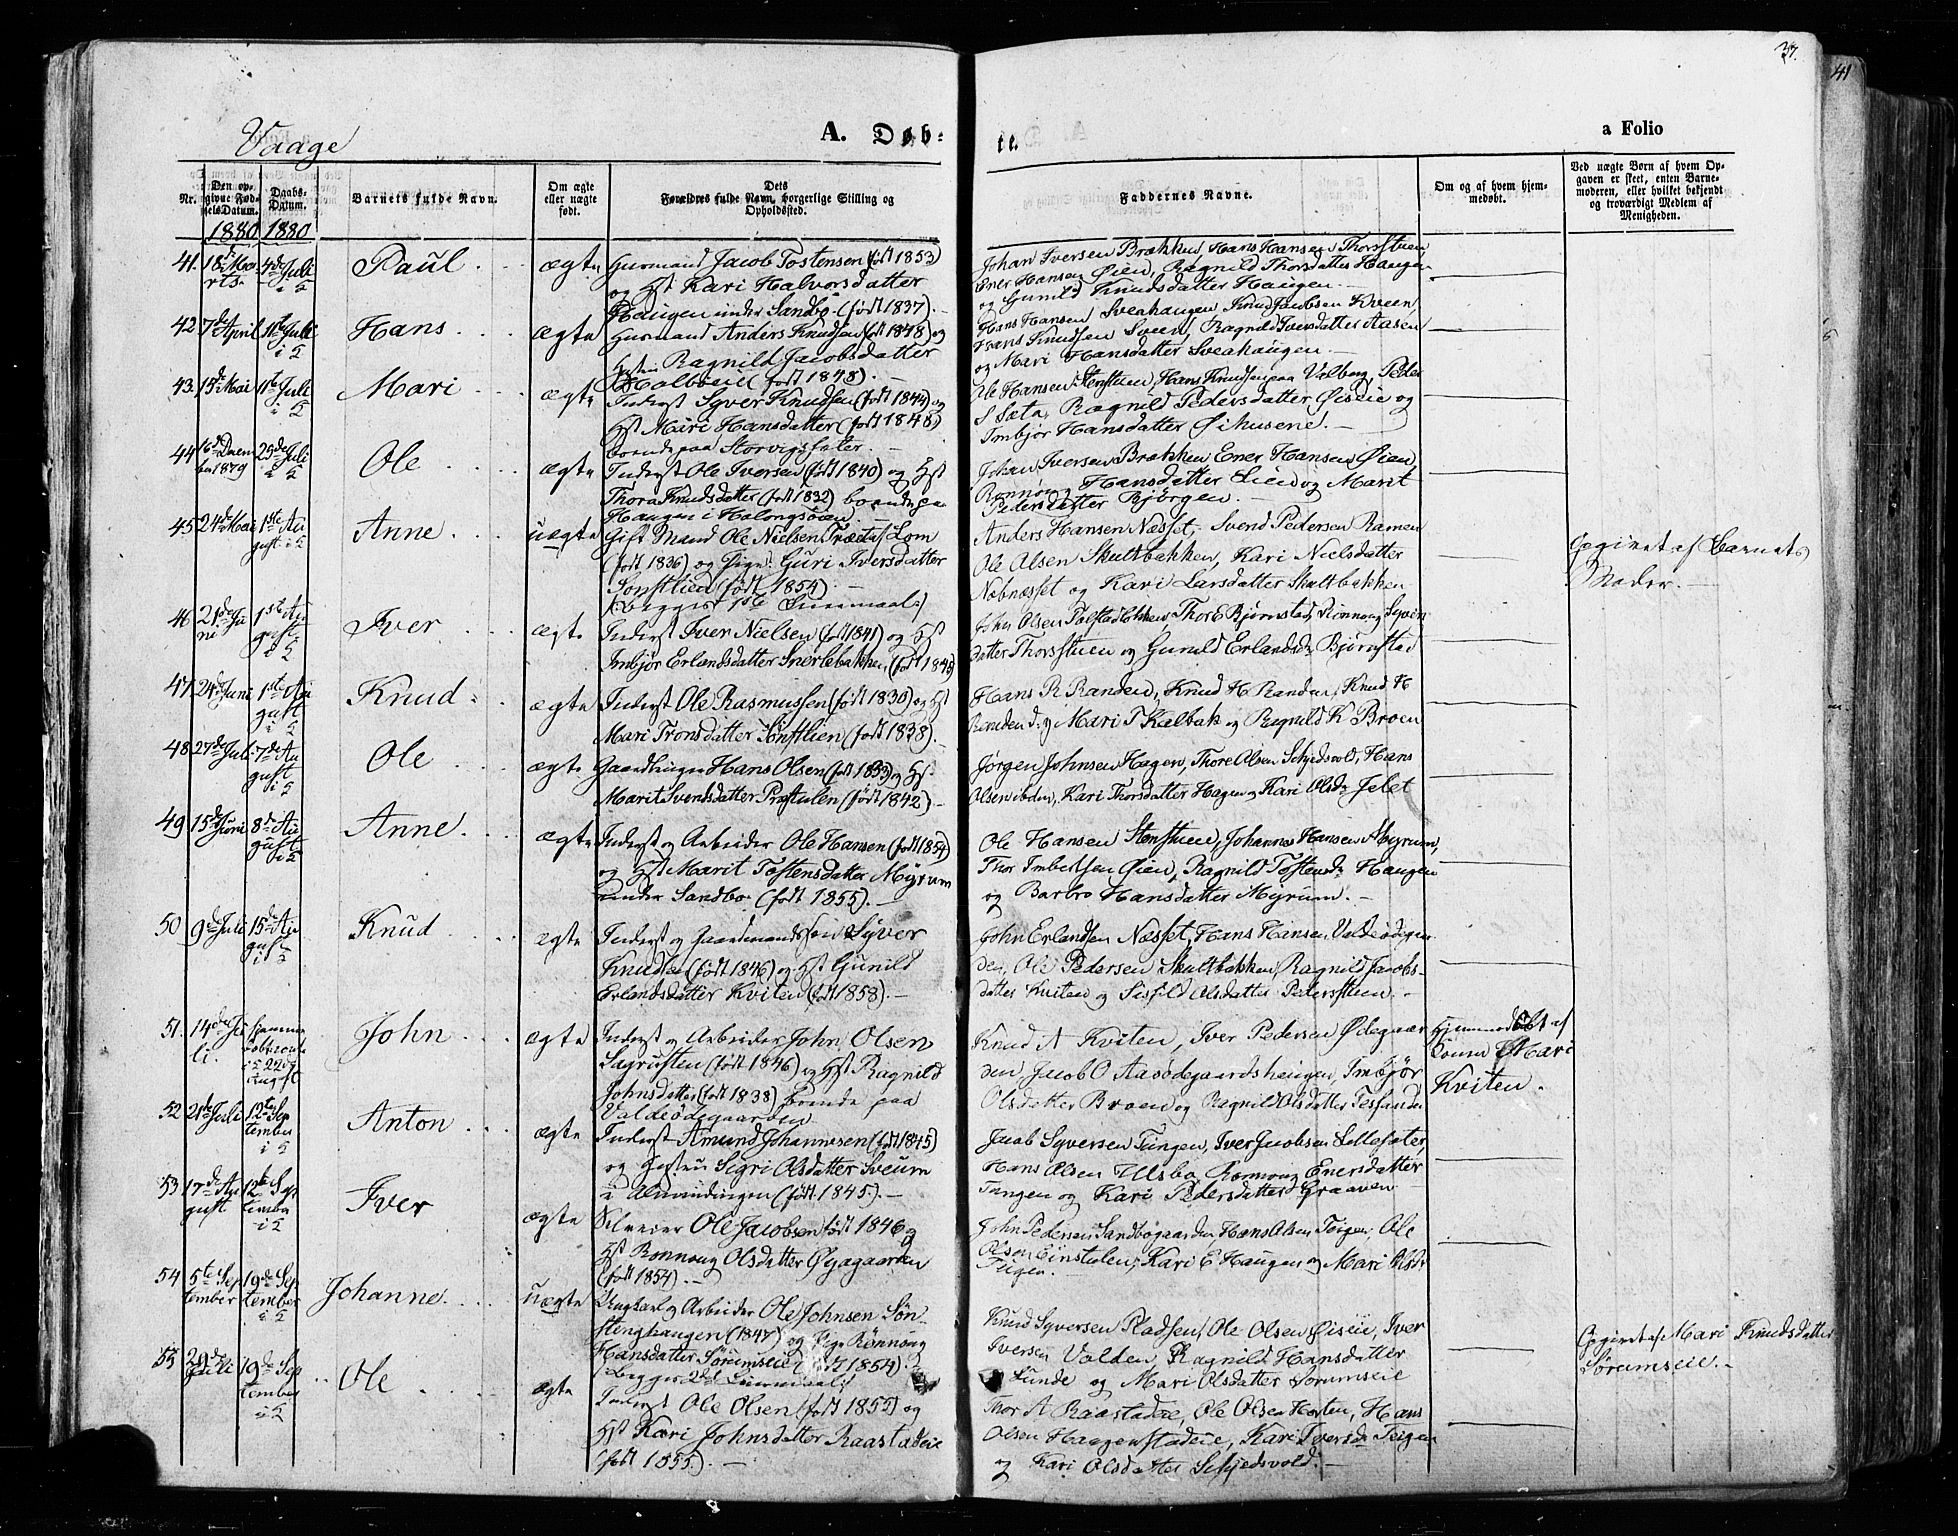 37.
41
Vaage
A. Døb-
te.
a Folio
Nr.
Den op-
givne Fød-
selsDatum.
Daabs-
Datum.
Barnets fulde Navn.
Om ægte
eller uægte
født.
Dets
Forældres fulde Navn, borgerlige Stilling og
Opholdssted.
Faddernes Navne.
Om og af hvem hjem-
medøbt.
Ved uægte Børn af hvem Op-
gaven er skeet, enten Barne-
moderen, eller hvilket bekjendt
og troværdigt Medlem af
Menigheden.
1880 1880
41. 18de Mar
rts.
4de Juli
i S
Paul
ægte
Husmand Jacob Tostensen (født 1853)
og Hst Kari Halvorsdatter
Haugen under Sandbo. (født 1837).
Johan Iversen Brækken, Hans Hansen Thorsstuen
Ener Hansen Øien, Ragnild Thorsdatter Haugen
og Gunild Knudsdatter Haugen.
42 7de April
11te Juli
i S
Hans
ægte
Husmand Anders Knudsen (født 1848) og
Hustru Ragnild Jacobsdatter
(født 1848).
Hans Hansen Sveahaugen, Knud Jacobsen Kveen,
Hans Knudsen Sveen, Ragnild Iversdatter Aasen
og Mari Hansdatter Sveahaugen
43. 15de Mai
11te Juli
i S
Mari
ægte
Inderst Syver Knudsen (født 1844) og
Hst Mari Hansdatter (født 1848)
boende paa Storvigsæter.
Ole Hansen Stenstuen, Hans Knudsen paa Valberg, Peder
S Sæta, Ragnild Pedersdatter Øiseie og
Imbjør Hansdatter Øihusene.
44 16de Decem
ber 1879
25de Juli
i S
Ole
ægte
Inderst Ole Iversen (født 1840) og Hst
Thora Knudsdatter (født 1832) boende paa
Haugen i
Johan Iversen Brækken Ener Hansen Øien,
Rønnøug Hansdatter Lien og Marit
Pedersdatter Bjørgen.
45 24de Mai
1ste Au
gust i S
Anne
uægte
Gift Mand Ole Nielsen Træet / Lom
(født 1836) og Pige Guri Iversdatter
Sønstlien (født 1854)
(: begges 1ste Leiermaal :)
Anders Hansen Næsset, Svend Pedersen Ramen
Ole Olsen Skultbakken, Kari Nielsdatter
Nobnæsset og Kari Larsdatter Skultbakken
Opgivet af Barnets
Moder.
46 21de Ju
ni
1ste Au
gust
i S
Iver
ægte
Inderst Iver Nielsen (født 1841) og Hst
Imbjør Erlandsdatter Snerlebakken (født 1848)
John Olsen Thor E Bjørnstad, Rønnoug Syver
datter Thorsstuen og Gunild Erlandsd: Bjørnstad
47 24de Juni
1ste Au
gust
i S
Knud
ægte
Inderst Ole Rasmussen (født 1830) og Hst
Mari Tronsdatter Sønstlien (født 1838).
Hans R Randen, Knud H Randen, Knud H
Randen d: y Mari T Kalbak og Ragnild K Broen
48 27de Juli
7de Au
gust
i S
Ole
ægte
Gaardbruger Hans Olsen (født 1853) og Hst
Marit Svendsdatter Præstulen (født 1842)
Jørgen Johnsen Hagen, Thore Olsen Schjedsvold, Hans
Olsen ibden, Kari Thorsdatter Hagen og Kari Olsdr Jelet
49 15de Juni
8de Au
gust
i S
Anne
ægte
Inderst og Arbeider Ole Hansen (født 1854)
og Hst Marit Tostensdatter Myrum
under Sandbo. (født 1855).
Ole Hansen Stenstuen, Johannes Hansen Myrum,
Thor Imbertsen Øien, Ragnild Tostensdr Haugen
og Barbro Hansdatter Myrum.
50 9de Juli
15de Au
gust
i S
Knud
ægte
Inderst og Gaardmandssøn Syver
Knudsen (født 1846) og Hst Gunild
Erlandsdatter Kviten (født 1858).
John Erlandsen Næsset, Hans Hansen Valdeødegaar
den, Ole Pedersen Skultbakken, Ragnild Jacobs-
datter Kviten og Sigrid Olsdatter Pedersstuen.
51. 14de Ju
li.
i S 22de
August
John
ægte
Inderst og Arbeider John Olsen
Sagrusten (født 1846) og Hst Ragnild
Johnsdatter (født 1838) boende paa
Valdeødegaarden
Knud A Kviten, Iver Pedersen Ødegaar
den, Jacob O Aasødegaardshaugen, Imbjør
Olsdatter Broen og Ragnild Olsdatter
Hjemmedøbt af
Mari
Kviten.
52 21de Juli
12te Sep
tember
i S
Anton
ægte
Inderst Amund Johannesen (født 1845)
og Hustru Sigri Olsdatter Sveum
i Almindingen (født 1845).
Jacob Syversen Tungen, Iver Jacobsen Lillesæter,
Hans Olsen Ulsbo, Rønnoug Enersdatter
Tungen og Kari Pedersdatter Graaven
53 17de Au
gust
12te Sep
tember
i S
Iver
ægte
Selveier Ole Jacobsen født 1846 og
Hst Rønnoug Olsdatter Øygaarden
(født 1854).
John Pedersen Sandbogaarden, Hans Olsen Teigen, Ole
Olsen Einstulen, Kari E Haugen og Mari Olsdr
Teigen.
54 5te Sep
tember
19de Sep
tember
i S
Johanne
uægte
Ungkarl og Arbeider Ole Johnsen Søn-
stenghaugen (1847) og Pige Rønnøug
Hansdatter Sørumseie (født 1854).
(begges 2det Leiermaal)
Knud Syversen Pladsen, Ole Olsen Øiseie, Iver
Iversen Valden, Ragnild Hansdatter
Sunde og Mari Olsdatter Sørumseie
Opgivet af Mari Knudsdatter
Sørumseie.
55 29de
Juli
19de Sep
tember
i S
Ole
ægte
Inderst Ole Olsen (født 1855) og
Hst Kari Johnsdatter Raastadeie
(født 1855).
Thor A Raastadeie, Ole Olsen Horten, Hans
Olsen Haagenstadeie, Kari Iversdr Teigen
og Kari Olsdatter Schjedsvold.